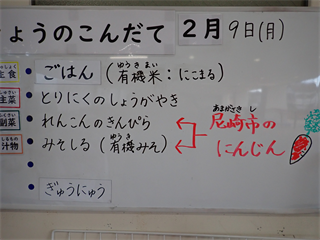 きょうのこんだて 2月9日(月)
主食
ごはん(有機米:にこまる)
ゆうきまい
主菜
とりにくのしょうがやき
副菜
れんこんのきんぴら
汁物
しるもの
みそしる(有機みそ)
ゆうき
あまがさきし
尼崎市の
にんじん
ぎゅうにゅう